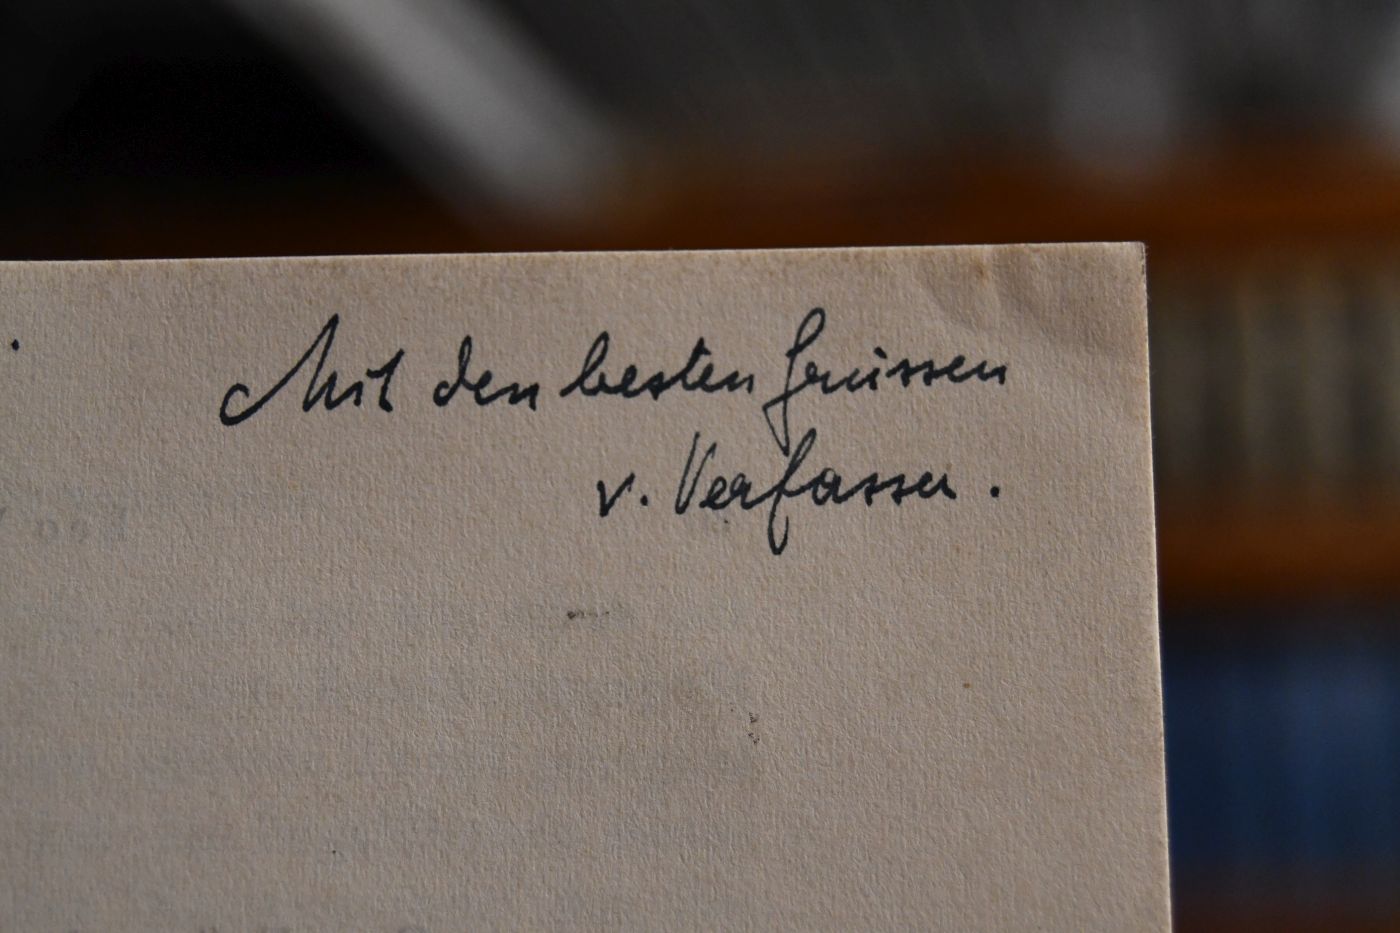 Mit den besten Grüssen
v. Verfasser.